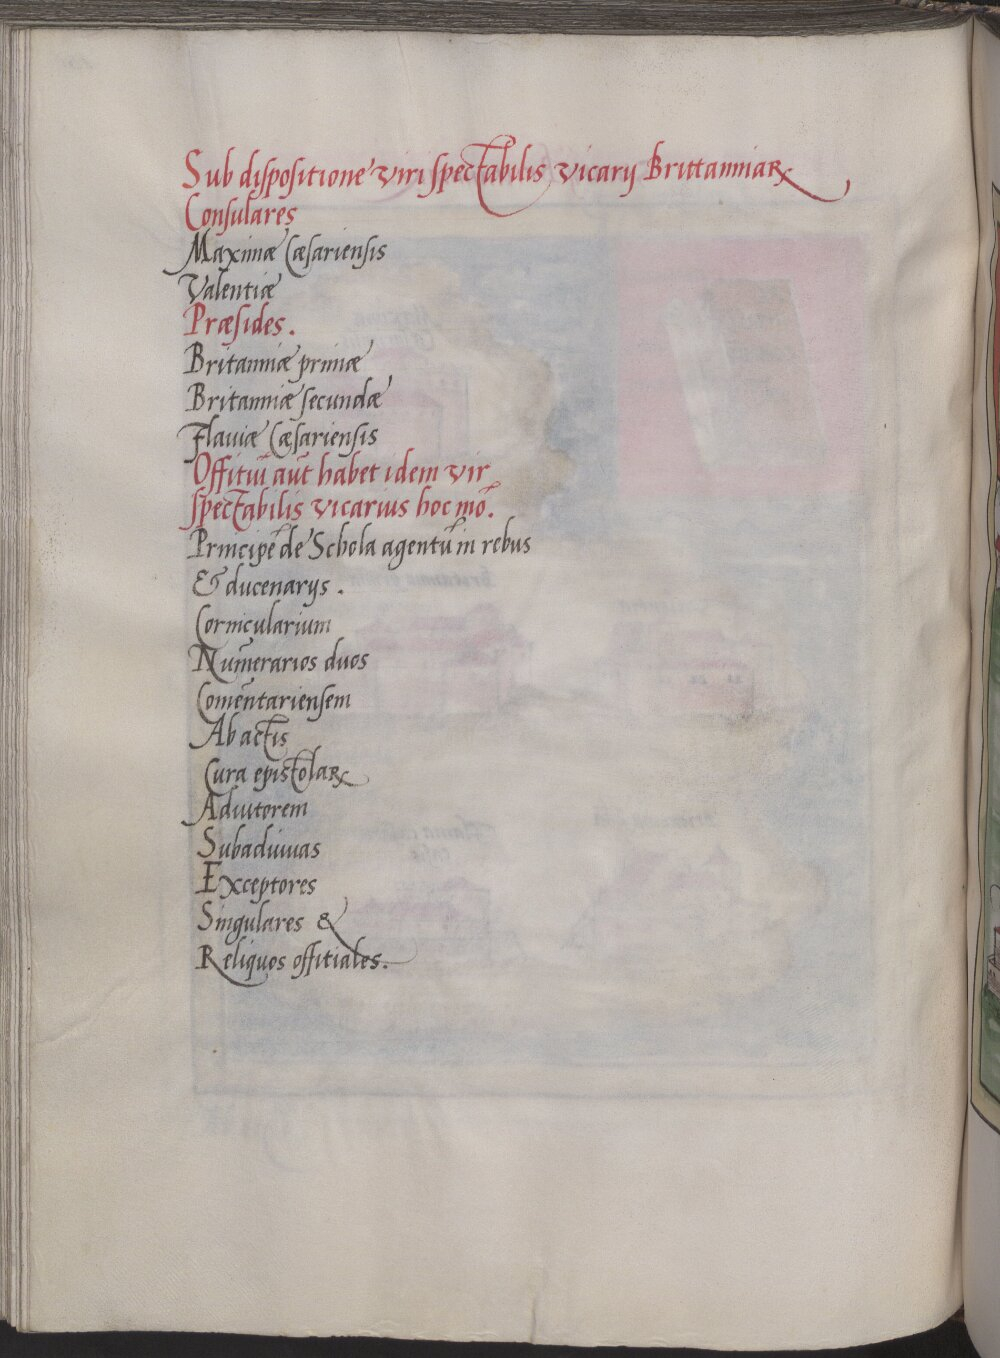 Sub dispositione viri spectabilis vicarij Brittanniaꝝ
Consulares
Maximæ Cæsariensis
Valentiæ
Præsides.
Britanniæ primæ
Britanniæ secundæ
Flauiæ Cæsariensis
Offitiū aūt habet idem vir
spectabilis vicarius hoc mō.
Principē de Schola agentū in rebus
& ducenarijs.
Cornicularium
Numerarios duos
Comentariensem
Ab actis
Cura epistolaꝝ
Adiutorem
Subadiuuas
Exceptores
Singulares &
Reliquos offitiales.